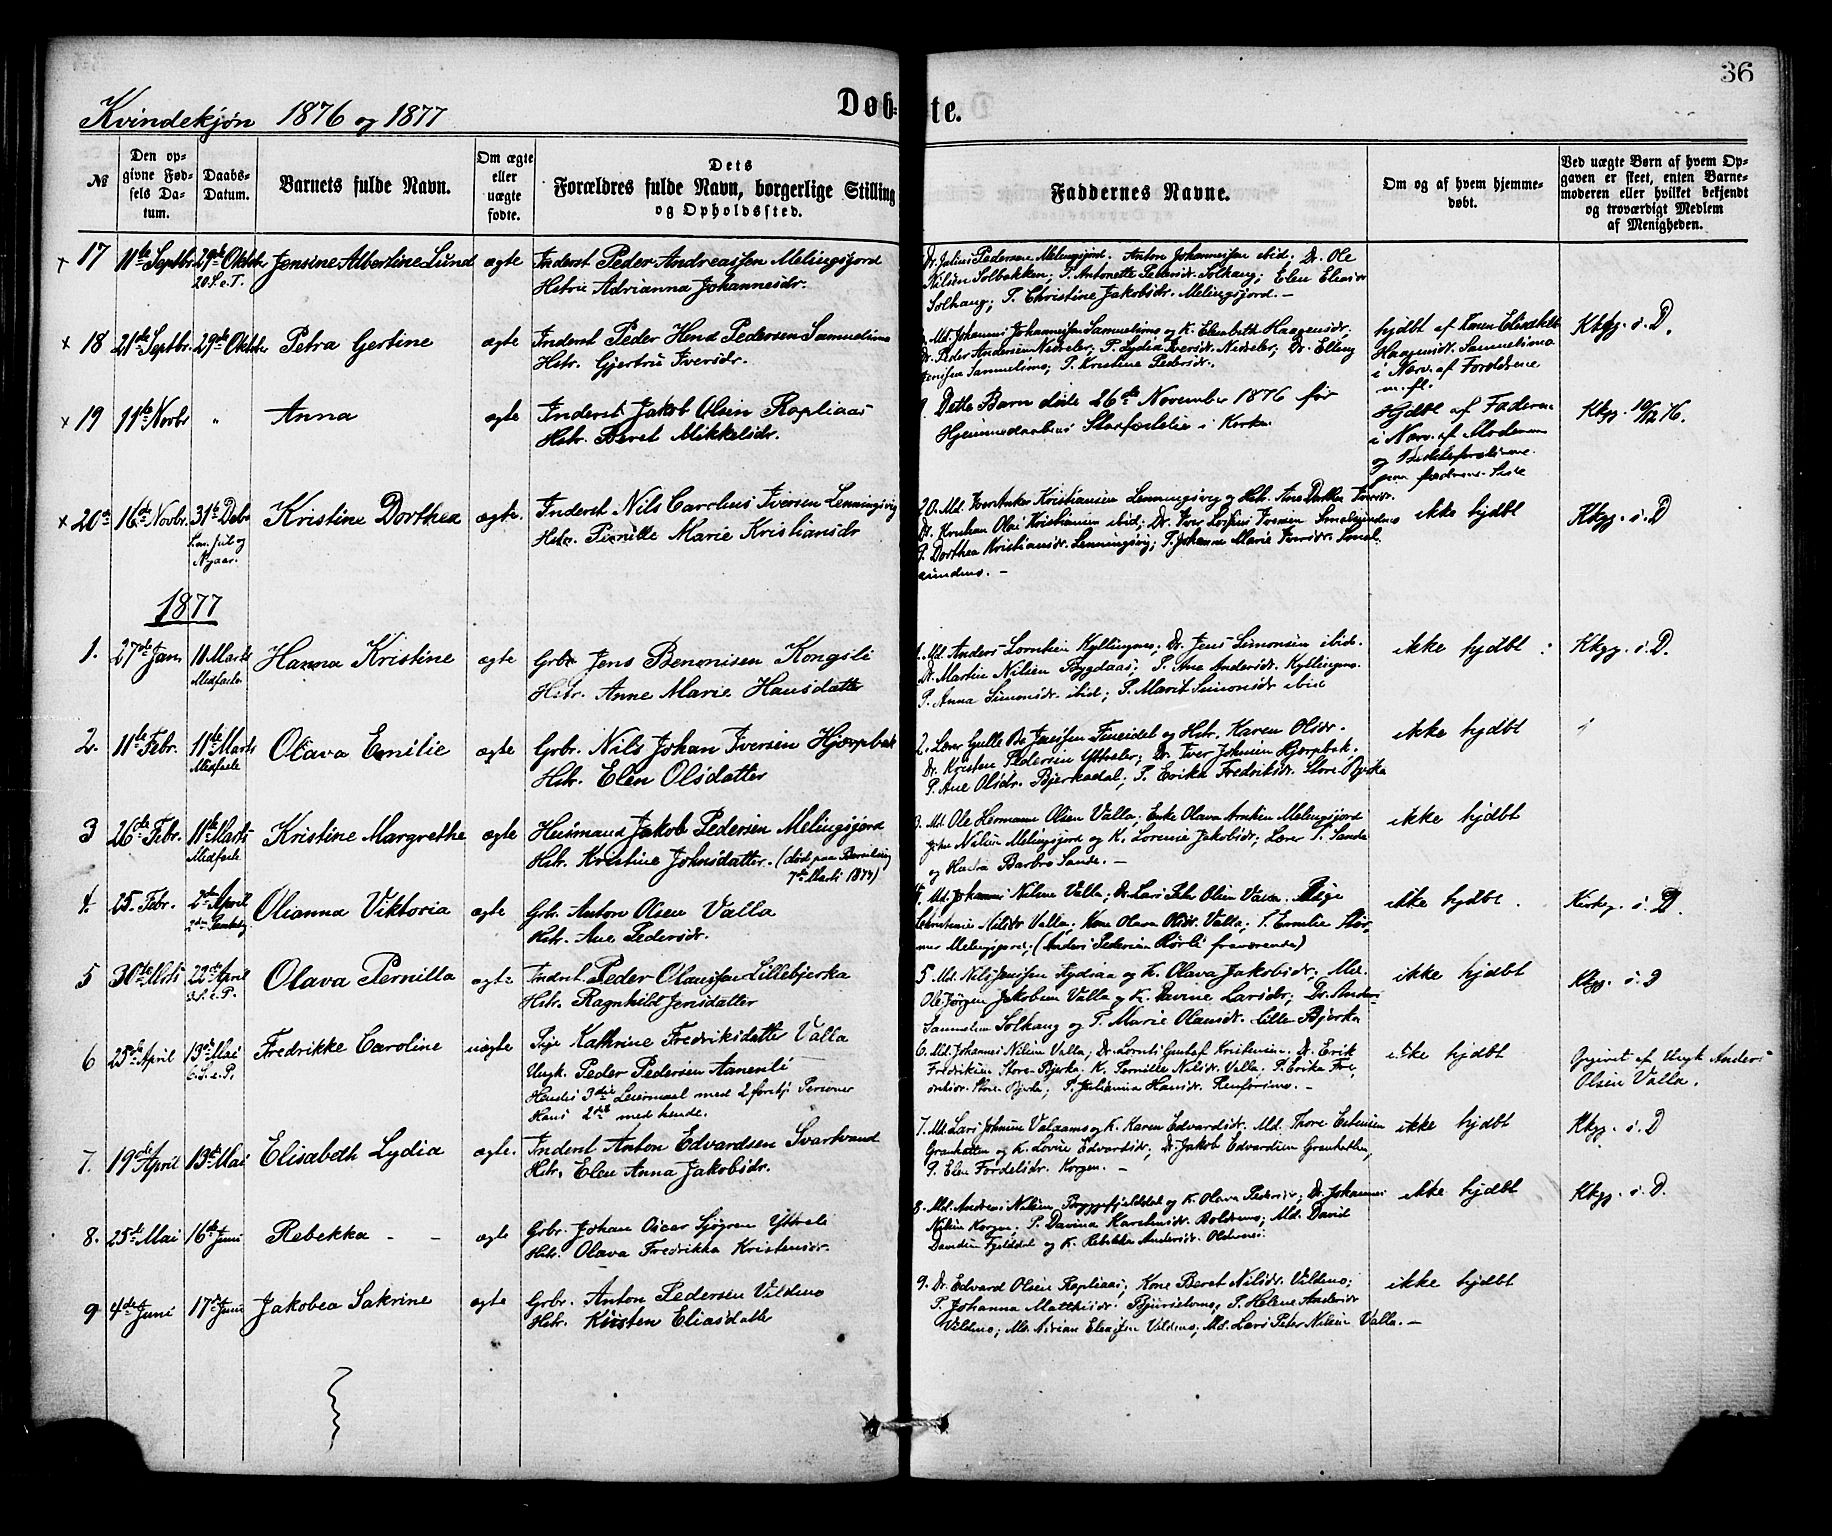 36
Kvindekjøn 1876 og 1877
Døb- te.
№ Den opgivne Fødsels Datum. Daabs-Datum. Barnets fulde Navn. Om ægte eller uægte fødte. Dets Forældres fulde Navn, borgerlige Stilling og Opholdssted. Faddernes Navne. Om og af hvem hjemmedøbt. Ved uægte Børn af hvem Opgaven er skeet, enten Barnemoderen eller hvilket bekjendt og troværdigt Medlem af Menigheden.
17 11te Septbr. 29de Oktbr Jensine Albertine Lund ægte Inderst Peder Andreassen Melingsjord
20 S. e. T. Hstru Adrianna Johannesdr.
Dr. Julius Pedersen Melingsjord. Anton Johannessen ibid. Dr. Ole
Nilsen Solbakken; P. Antonette Pedersdr. Solhaug; Elen Eliasdr
Solhaug; P. Christine Jakobsdr. Melingsjord. —
× 18 21de Septbr. 29de Oktbr Petra Gertine ægte Inderst Peder Pedersen
Hstr. Gjertru Iversdr.
Md. Johannes Johannessen og K. Elisabeth Haagensdr.
Dr. Peder Andersen P. Lydia Iversdr. Dr. Elling
Jensen P. Kristine Pedersdr.
hjdbt af Karen Elisabeth
Haagensdr.
i Nærv. af Forældrene
m. fl.
Kkg. i. D.
× 19 11te Novbr " Anna ægte Inderst Jakob Olsen Røpliaas
Hstr. Beret Mikkelsdr.
Dette Barn døde 26de November 1876 før
Hjemmedaabens Stadfæstelse i Kirken
Hjdbt af Faderen
i Nærv. af Moderen
og
Kkg. 10/12 76.
× 20de 16de Novbr. 31te Debr Kristine Dorthea ægte. Inderst Nils Carelius Iversen Lenningsvig
S. m. Jul og
Nyaar.
Hstr. Pernille Marie Kristiansdr
20. Md. Kristiansen Lenningsvig og Hstr. Ane Dorthea Iversdr.
Dr. Kristian Olai Kristiansen ibid; Dr. Iver Iversen
P. Dorthea Kristiansdr. Lenningsvig; P. Johanna Marie Iversdr.
Ikke hjdbt
Kkg. i. D
1877
1. 27de Jan. 11 Marts Hanna Kristine ægte Grbr Jens Benonisen Kongsli
Midfaste Hstr. Anne Marie Hansdatter
1. Md. Anders Lorntsen Kyllingnes; Dr. Jens Simonsen ibid.
Dr. Martin Nilsen Bygdaas; P. Ane Andersdr. Kyllingnes.
P. Anna Simonsdr. ibid; P. Marit Simonsdr ibid
ikke hjdbt
Kkg. i. D.
2. 11te Febr. 11te Marts Olava Emilie ægte Grbr. Nils Johan Iversen Hjørpbak
Midfaste Hstr. Elen Olsdatter
2. Lærer Jensen Fineidet og Hstr. Karen Olsdr.
Dr. Kristen Pedersen Dr. Iver Johnsen Hjørpbak.
P. Ane Olsdr. Bjerkadal; P. Erika Fredriksdr. Store Bjerka
ikke hjdbt
3 26de Febr. 11te Marts Kristine Margrethe ægte Huusmand Jakob Pedersen Melingsjord
Midfaste Hstr. Kristine Johnsdatter. (død paa Barselseng
7de Marts 1877)
3. Md. Ole Hermann Olsen Valla; Enke Olava Melingsjord
John Nilsen Melingsjord og K. Lorense Jakobsdr; Lærer P. Sande
og Hustru Barbro Sande. —
ikke hjdbt
4. 25. Febr. 2den April Olianna Viktoria ægte Grbr. Anton Olsen Valla
2den Paaskedg Hstr. Ane Pedersdr.
4. Md. Johannes Nilsen Valla; Dr. Lars Peter Olsen Valla. Pige
Nilsdr Valla; Kone Olava Olsdr. Valla; P. Emilie
Melingsjord; (Anders Pedersen Rørli fraværende)
ikke hjdbt.
Kirkg. i. D.
5 30te Mrts 22de April Olava Pernilla ægte Inderst. Peder Olaussen Lillebjerka
3. S. e. P. Hstr. Ragnhild Jensdatter
5 Md. Nils Jensen og K. Olava Jakobsdr; Md.
Ole Jørgen Jakobsen Valla og K. Davine Larsdr; Dr. Anders
Samuelsen Solhaug og P. Marie Olausdr. Lille Bjerka
ikke hjdbt
Kkg. i. D
6 25de April 13de Mai Fredrikke Caroline uægte Pige Kathrine Fredriksdatter Valla
6. S. e. P. Ungk. Peder Pedersen Aanenli
Hendes 3die Leiermaal med 2 forskj. Personer
Hans 2det med hende.
6. Md. Johannes Nilsen Valla; Dr. Lornts Gustaf Kristensen. Dr. Erik
Fredriksen Store-Bjerka. K. Pernille Nilsdr. Valla. P. Erika
Store-Bjerka; P. Julianna Hansdr. —
ikke hjdbt
Opgivet af Ungk Anders
Olsen Valla.
7. 19de April 13de Mai Elisabeth Lydia ægte. Inderst Anton Edvardsen Svartvand
Hstr. Elen Anna Jakobsdr.
7. Md. Lars Johnsen og K. Karen Edvardsdr. Md. Thore Estensen
Granhatten og K. Lovise Edvardsdr; Dr. Jakob Edvardsen Granhatten,
P. Elen Fordelsdr. Korgen. —
ikke hjdbt
Kkg. i. D
8. 25de Mai 16de Juni Rebekka — — ægte Grbr. Johan Oscar Sjøgren
Hstr. Olava Fredrikka Kristensdr.
8. Md. Andreas Nilsen og K. Olava Pedersdr; Dr. Johannes
Nilsen Korgen; P. Davina Karstensdr. Md. David
Davidsen og K. Rebekka Andersdr.
ikke hjdbt
Kkg. i. D.
9 4de Juni 17de Juni Jakobea Sakrine ægte Grbr. Anton Pedersen Vildmo
Hstr. Kirsten Eliasdatter
9. Dr. Edvard Olsen Røpliaas; Kone Beret Nilsdr. Vildmo;
P. Johanna P. Helene Andersdr
Vildmo; Md. Adrian Eliassen Vildmo; Md. Lars Peter Nilsen Valla. —
ikke hjdbt